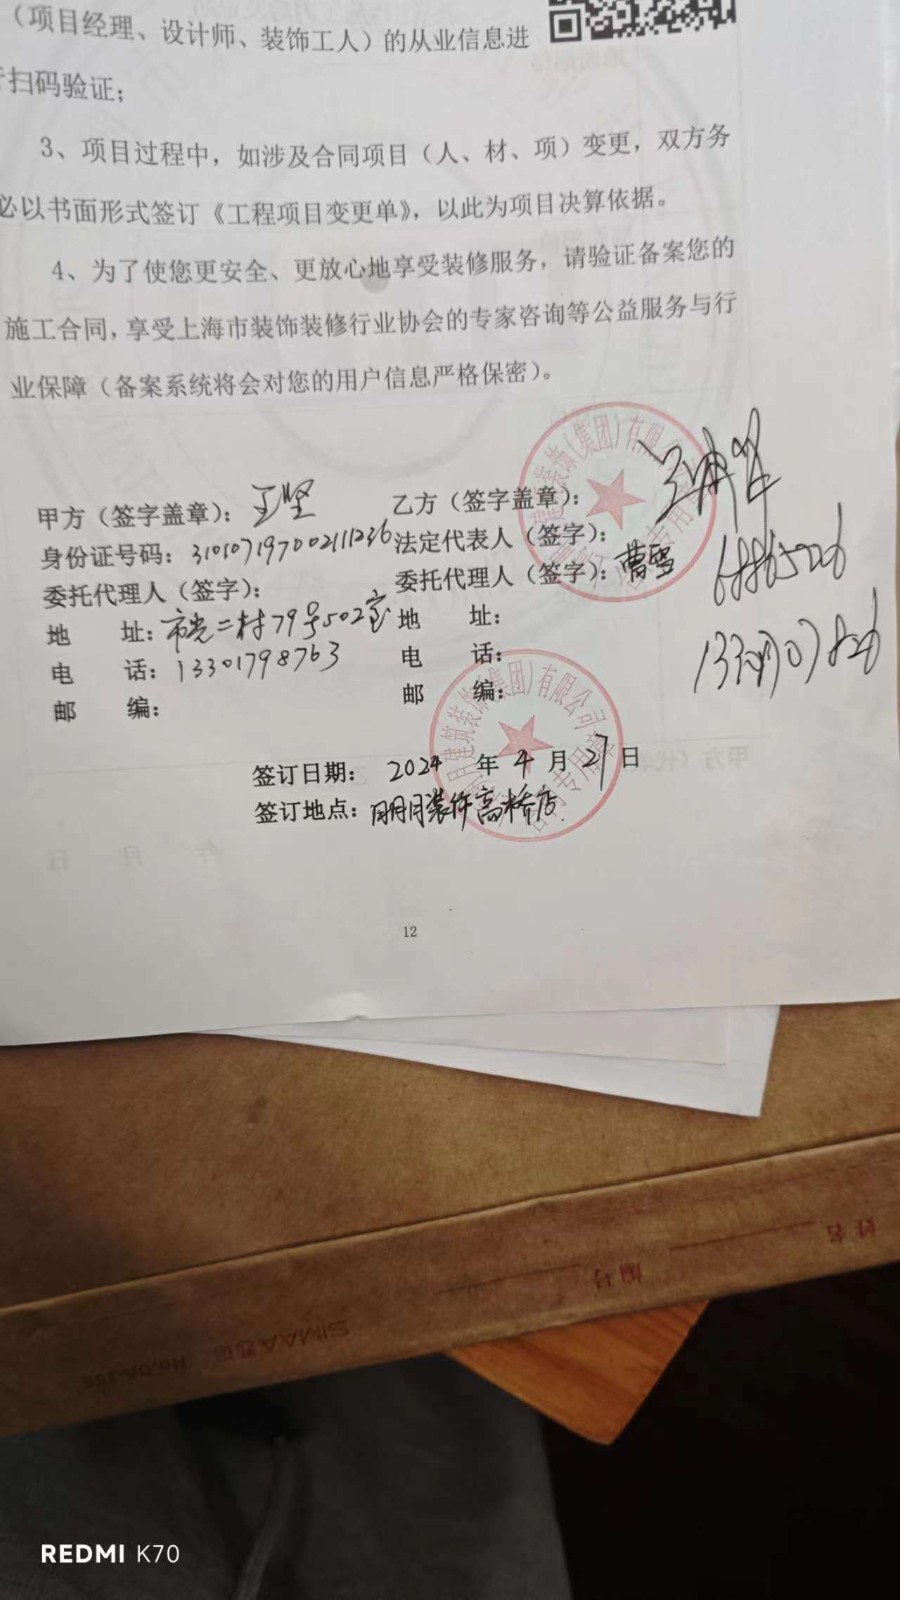 （项目经理、设计师、装饰工人）的从业信息进
行扫码验证；
3、项目过程中，如涉及合同项目（人、材、项）变更，双方务
必以书面形式签订《工程项目变更单》，以此为项目决算依据。
4、为了使您更安全、更放心地享受装修服务，请验证备案您的
施工合同，享受上海市装饰装修行业协会的专家咨询等公益服务与行
业保障（备案系统将会对您的用户信息严格保密）。
甲方（签字盖章）：王坚
身份证号码：310107197002111236
委托代理人（签字）：
地 址：市光二村79号502室
电 话：13301798763
邮 编：
乙方（签字盖章）：
法定代表人（签字）：
委托代理人（签字）：曹雪
地 址：
电 话：
邮 编：
建筑装饰(集团)有限公司
签订日期： 2024 年 4 月 27 日
签订地点：朋月装饰高桥店
12
甲方（代
年 月 日
姓名
编号
SIMAA
REDMI K70